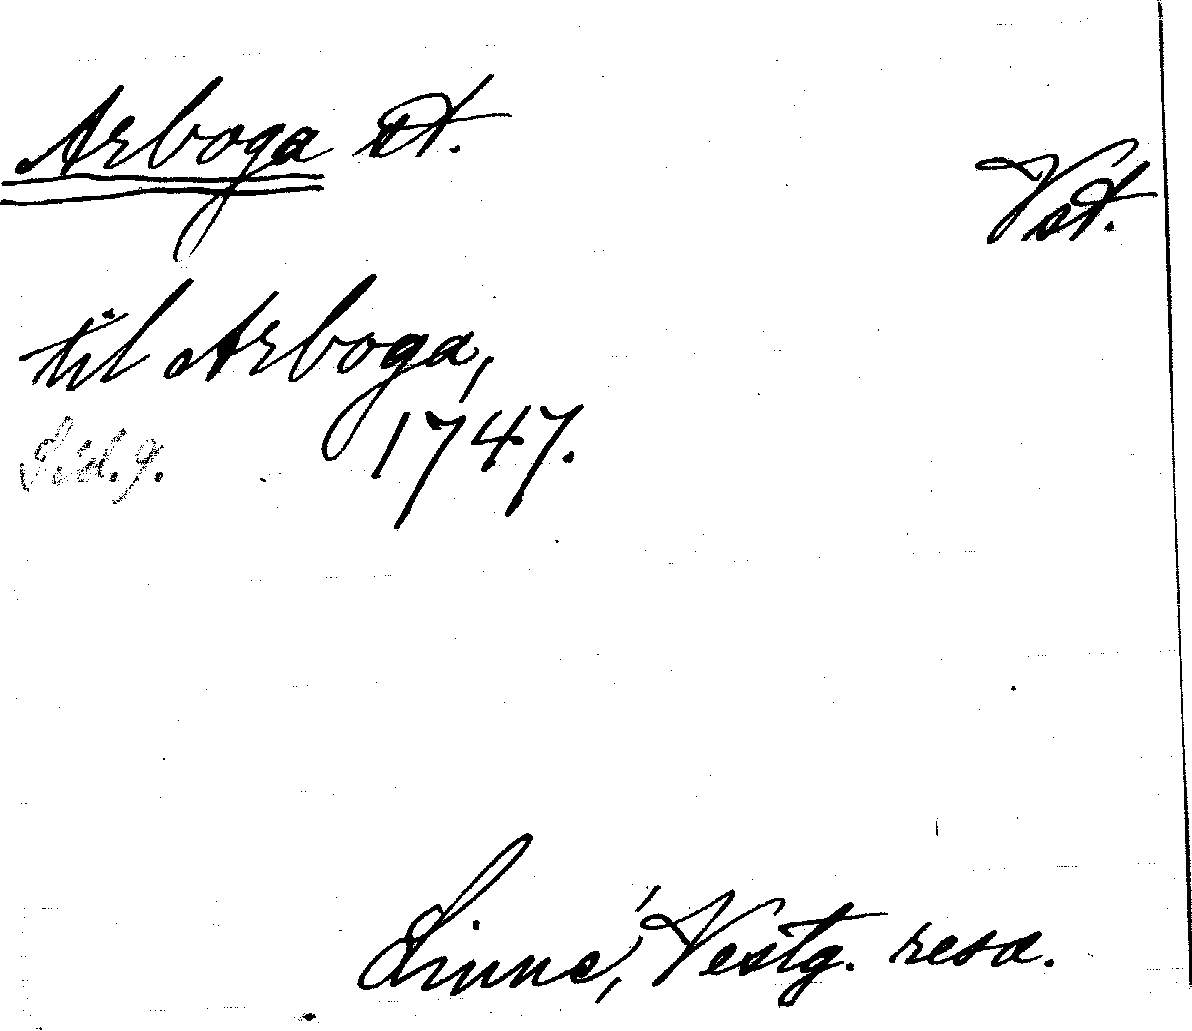 Arboga st.
Vst.
til Arboga,
1747.
Linné, Vestg. resa.